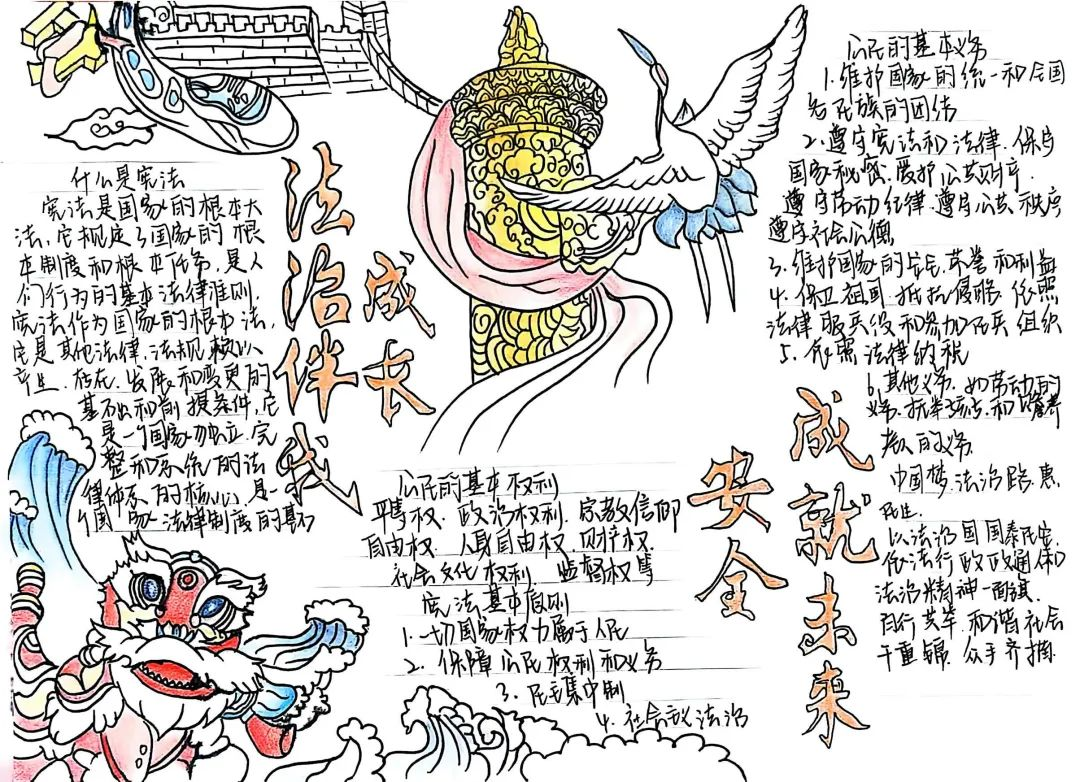 什么是宪法
宪法是国家的根本大
法,它规定了国家的根
本制度和根本任务,是人
们行为的基本法律准则,
宪法作为国家的根本法,
它是其他法律、法规赖以
产生、存在、发展和变更的
基础和前提条件,它
是一个国家独立、完
整和系统的法
律体系的核心,是一
个国家法律制度的基石
法治伴我
成长
公民的基本权利
平等权、政治权利、宗教信仰
自由权、人身自由权、财产权
社会文化权利、监督权等
宪法基本原则
1.一切国家权力属于人民
2.保障公民权利和义务
3.民主集中制
4.社会主义法治
安全
成就未来
公民的基本义务
1.维护国家的统一和全国
各民族的团结
2.遵守宪法和法律、保守
国家秘密、爱护公共财产、
遵守劳动纪律、遵守公共秩序
遵守社会公德
3.维护国家的安全、荣誉和利益
4.保卫祖国、抵抗侵略、依照
法律服兵役和参加民兵组织
5.依照法律纳税
6.其他义务,如劳动的
义务、抚养子女和赡养
老人的义务
中国梦、法治路、惠
民生、
以法治国国泰民安、
依法行政政通人和
法治精神一面旗、
百行共举、和谐社会
千重锦、众手齐描